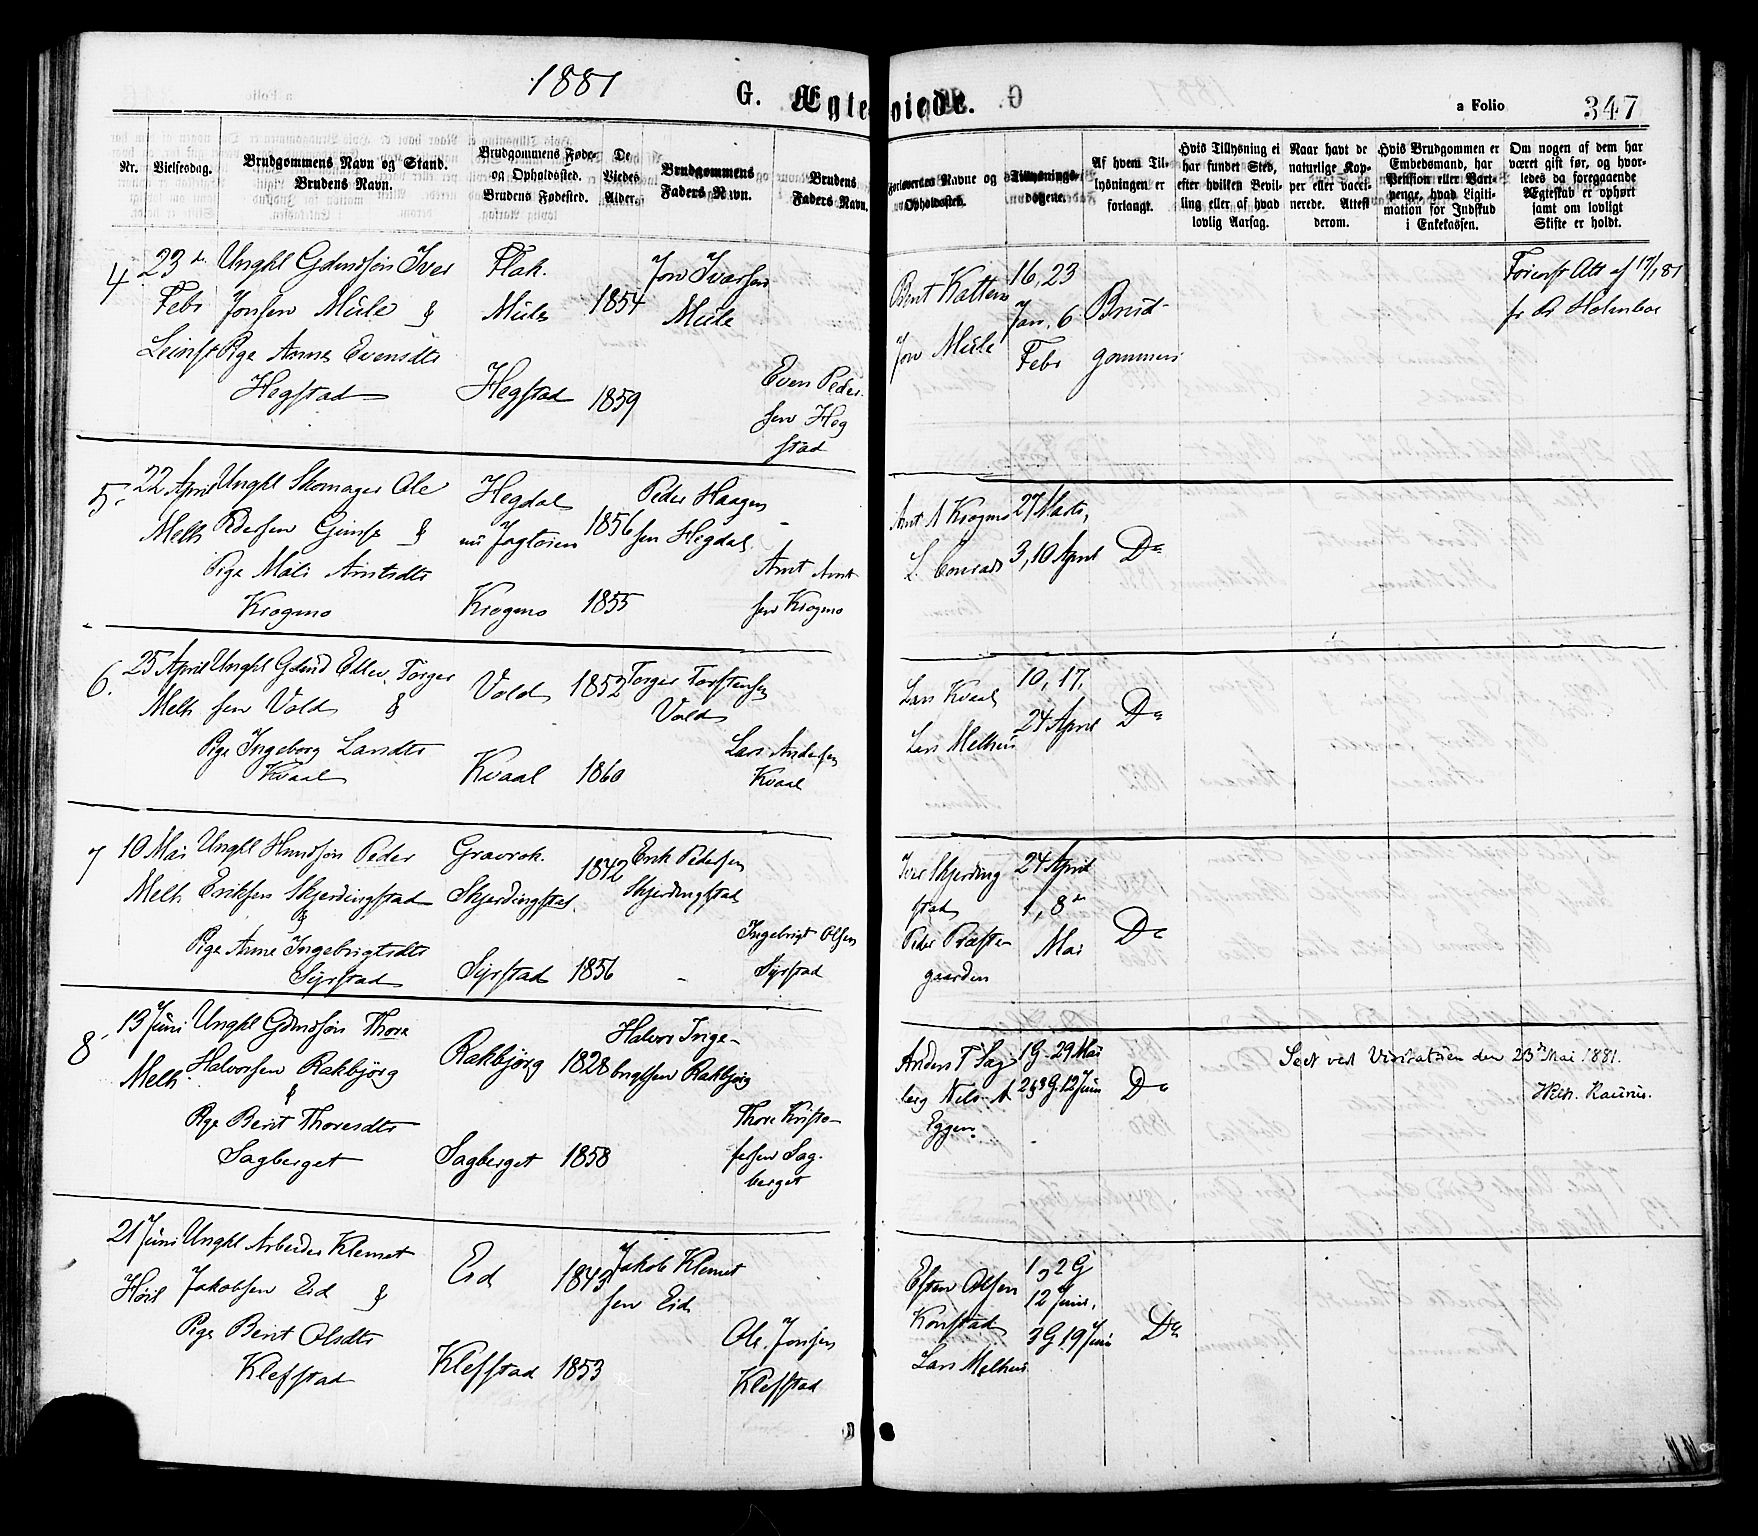 1881
G. Ægteviede.
a Folio
347
Nr.
Vielsesdag.
Brudgommens Navn og Stand.
Brudens Navn.
Brudgommens Føde-
og Opholdssted.
Brudens Fødested.
De
Viedes
Alder.
Brudgommens
Faders Navn.
Brudens
Faders Navn.
Forloverens Navne og
Opholdssted.
Tillysnings-
dagene.
Af hvem Til-
lysningen er
forlangt.
Hvis Tillysning ei
har fundet Sted,
efter hvilken Bevil-
ling eller af hvad
lovlig Aarsag.
Naar havt de
naturlige Kop-
per eller vacci-
nerede. Attest
derom.
Hvis Brudgommen er
Embedsmand, har
Petision eller Vart-
penge, hvad Ligiti-
mation for Indskud
i Enkekassen.
Om nogen af dem har
været gift før, og hvor-
ledes da foregaaende
Ægteskab er ophørt
samt om lovligt
Skifte er holdt.
4.
23de
Febr
Leinst
Ungkl Gdmdsøn Iver
Jonsen Mule &
Pige Anne Evensdtr
Hegstad
Flak.
Mule
Hegstad
1854
1859
Jon Ivarsen
Mule
Even Peder
sen Heg
stad
Bent Kattem
Jon Mule
16, 23
Jan. 6
Febr
Brud-
gommen
af 17/1 81
fr Dr Holmboe
5.
22 April
Melh
Ungkl Skomager Ole
Pedersen Gimse &
Pige Mali Arntsdtr
Krogmo
Hegdal
nu
Krogmo
1856
1855
Peder Haagen
sen Hegdal
Arnt Arnt
sen Krogmo
Arnt A Krogmo
L. Conrads
27 Marts,
3, 10 April
Do
6.
25 April
Melh
Ungkl Gdmd Ellev. Torger
sen Vold &
Pige Ingeborg Larsdtr
Kvaal
Vold
Kvaal
1852
1860
Torger Torstensen
Vold
Lars Andersen
Kvaal
Lars Kvaal
Lars Melhus
10, 17,
24 April
Do
7
10 Mai
Melh
Ungkl Hmdsøn Peder
Eriksen Skjerdingstad
&
Pige Anne Ingebrigtsdtr
Syrstad
Gravrok.
Skjerdingstad.
Syrstad
1842
1856
Erik Pedersen
Skjerdingstad
Ingebrigt Olsen
Syrstad
Iver Skjerding
stad
Peder Præste-
gaarden
24 April
1, 8de
Mai
Do
8
13 Juni
Melh.
Ungkl Gdmdsøn Thore
Halvorsen Rakbjörg
&
Pige Berit Thoresdtr
Sagberget
Rakbjörg
Sagberget
1828
1858
Halvor Inge-
brigtsen Rakbjörg
Thore Kristo-
fersen Sag-
berget
Anders T Sag-
berg Nels A
Eggen
1 G. 29 Mai
2&3 G. 12 Juni
Do
Seet ved Visitatsen den 23de Mai 1881.
21 Juni
Høil
Ungkl Arbeider Klemet
Jakobsen Eid &
Pige Berit Olsdtr
Klefstad
Eid
Klefstad
1843
1853
Jakob Klemet
sen Eid
Ole Jonsen
Klefstad
Esten Olsen
Konstad
Lars Melhus
1 & 2 G
12 Juni,
3 G. 19 Juni
Do